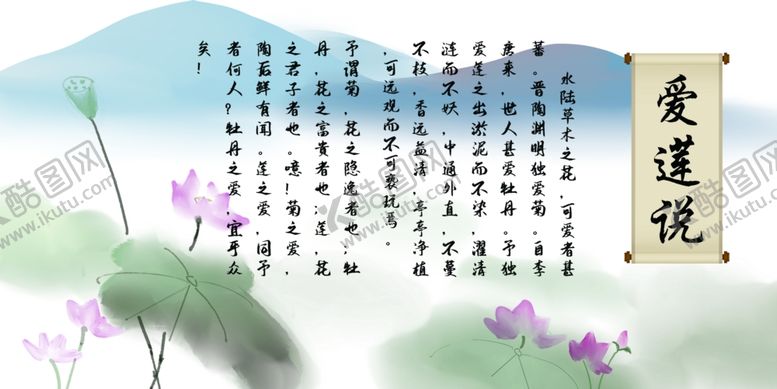 爱莲说
水陆草木之花,可爱者甚
蕃。晋陶渊明独爱菊。自李
唐来,世人甚爱牡丹。予独
爱莲之出淤泥而不染,濯清
涟而不妖,中通外直,不蔓
不枝,香远益清,亭亭净植
,可远观而不可亵玩焉。
予谓菊,花之隐逸者也;牡
丹,花之富贵者也;莲,花
之君子者也。噫!菊之爱,
陶后鲜有闻。莲之爱,同予
者何人?牡丹之爱,宜乎众
矣!
酷图网
www.ikutu.com